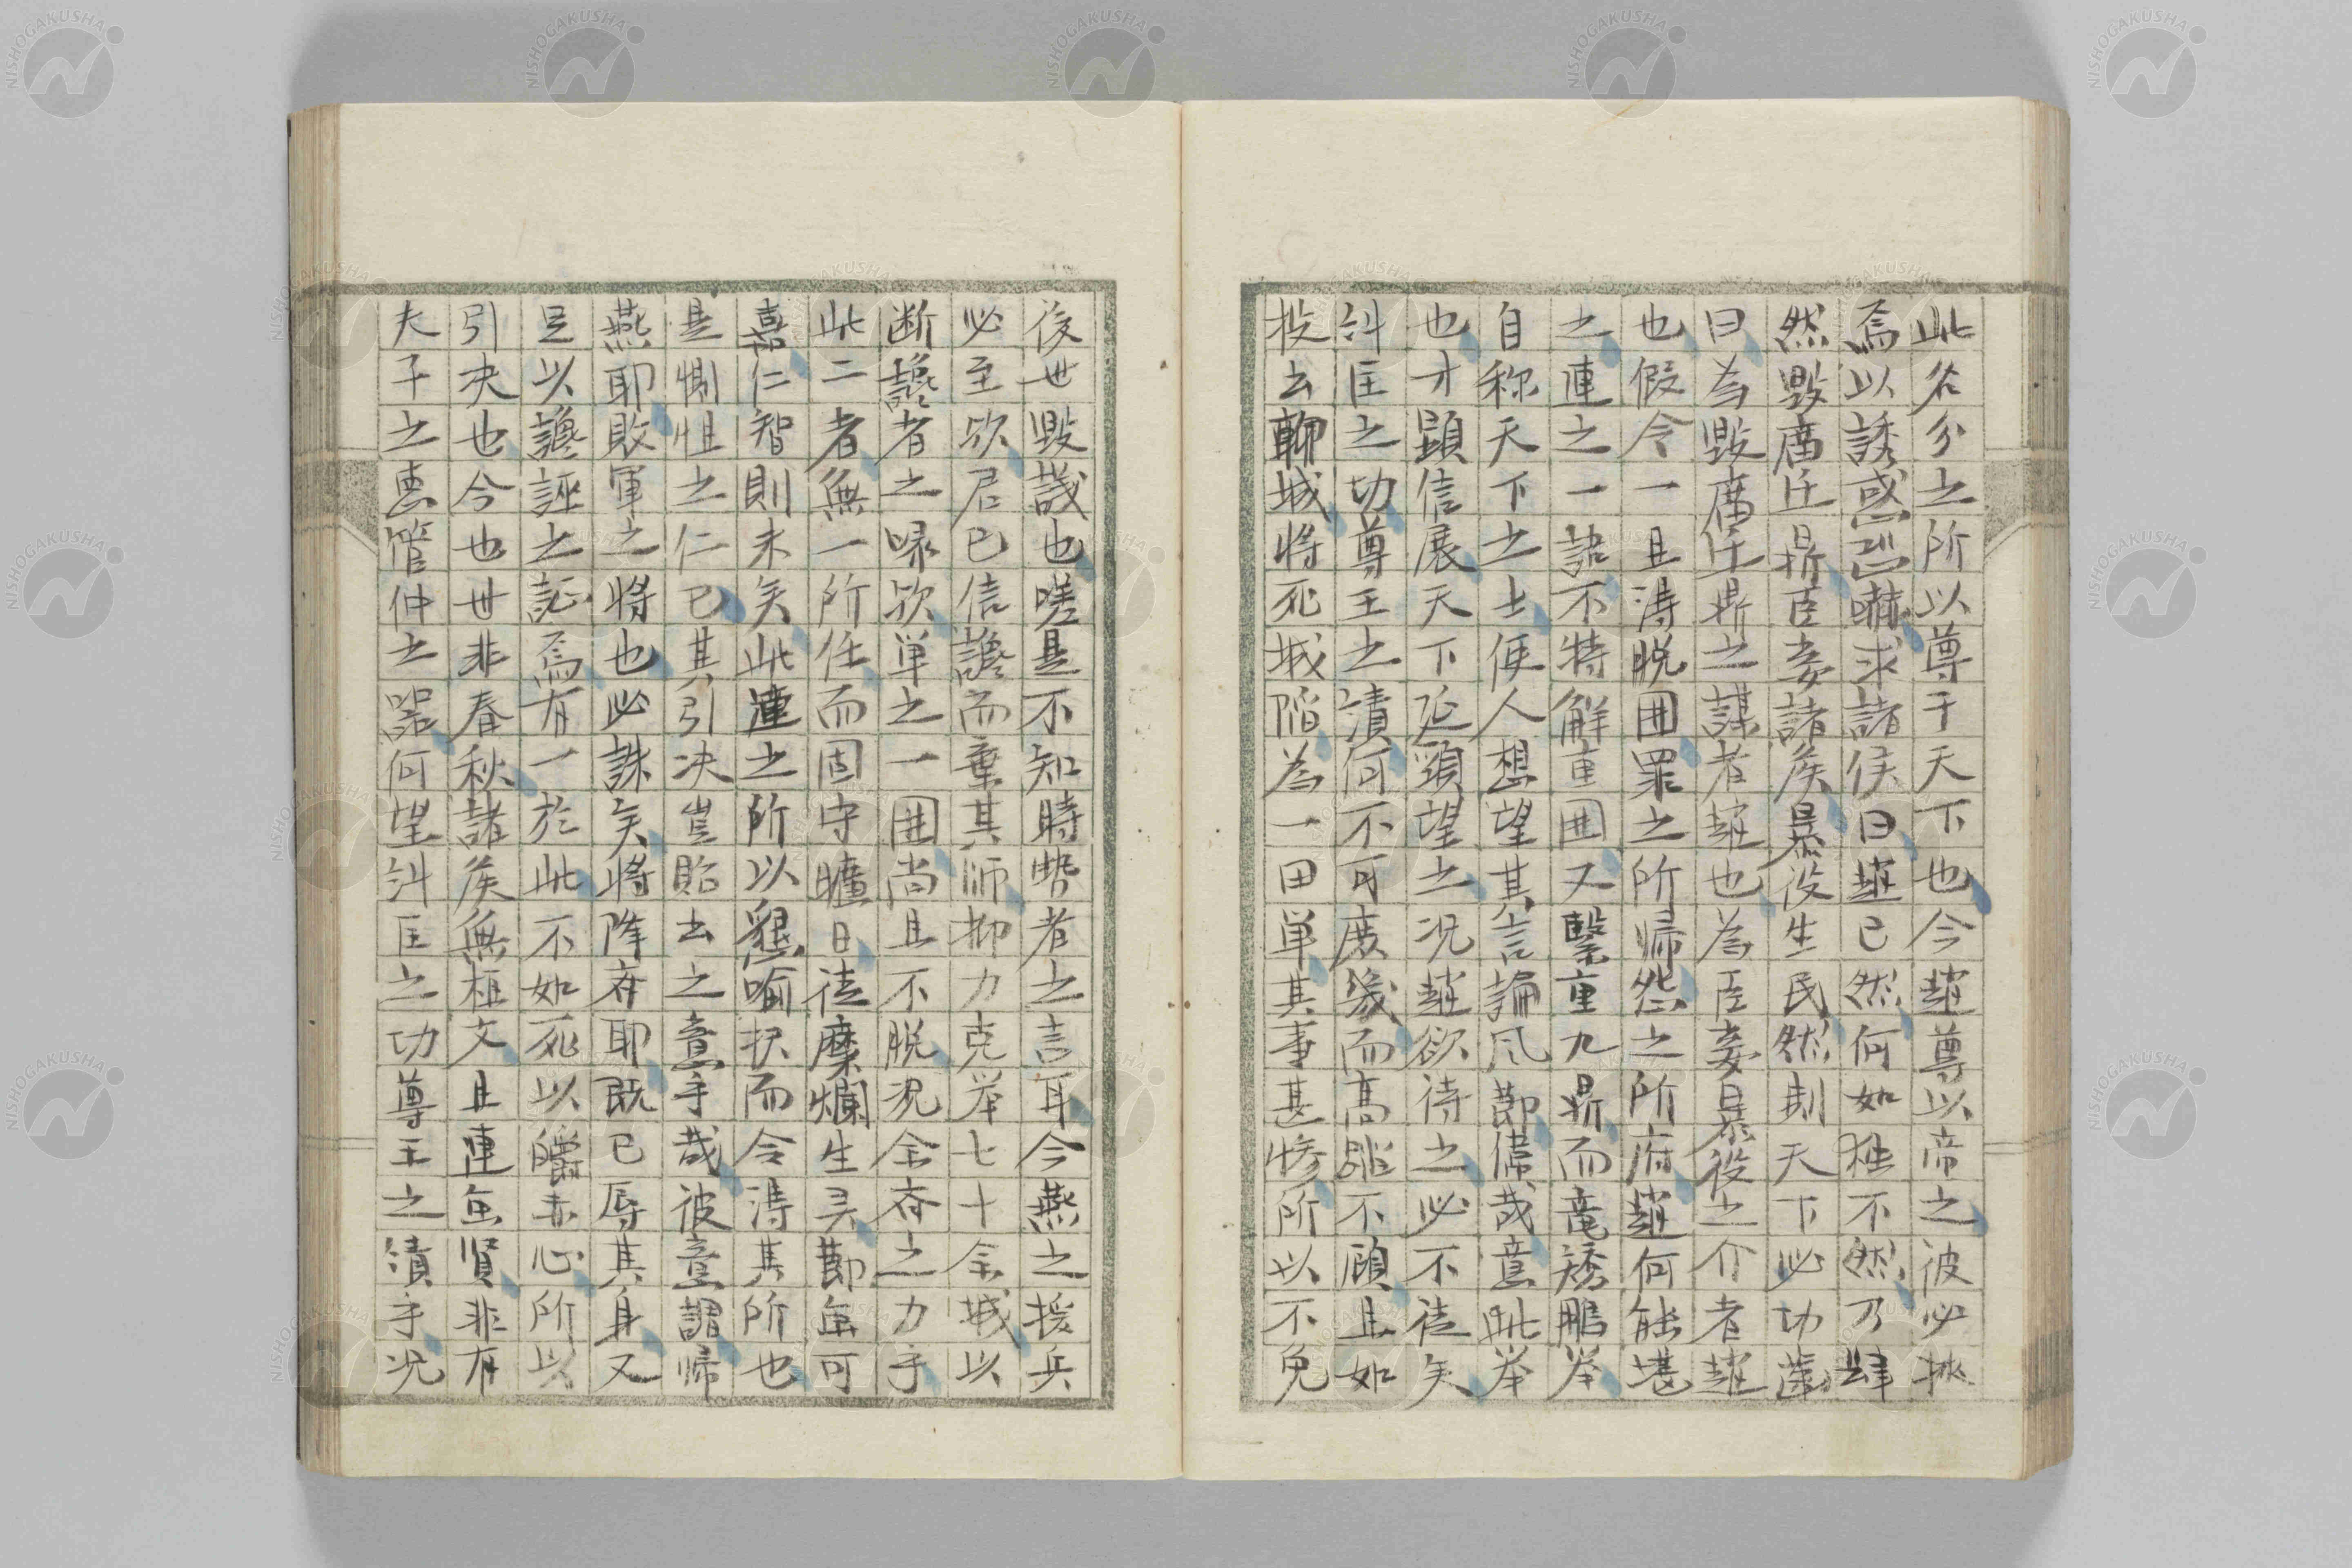 此名分之所以尊于天下也今趙尊以帝之彼必挾
焉以誘惑恐嚇求諸侯曰趙已然何如独不然乃肆
然毀廟迁鼎臣妾諸矦暴役生民然則天下必切
曰為毀廟迁鼎之謀者趙也為臣妾暴役之介者趙
也假令一旦得脱囲罪之所帰怨之所府趙何能堪
之連之一説不特解重囲又繋重九鼎而竜矯鵬挙
自称天下之士使人想望其言論風節偉哉意此挙
也才顕信展天下延頸望之況趙欲待之必不徒矣
糾匡之功尊王之績何不可庶幾而高踏不顧且如
投去聊城将死城陥為一田単其事甚惨所以不免
後世毀哉也嗟是不知時勢者之言耳今燕之援兵
必至欤君已信讒而棄其師抑力克挙七十余城以
断讒者之喙欤単之一囲尚且不脱況余斉之力乎
此二者無一所任而固守曠日徒糜爛生灵節無可
嘉仁智則未矣此連之所以懇喩択而令得其所也
是惻怛之仁已其引决豈貽去之意乎哉彼意謂帰
燕耶敗軍之将也必誅矣将降斉耶既已辱其身又
且以讒誣之証焉有一於此不如死以皭赤心所以
引决也今也世非春秋諸矦無桓文且連無賢非有
夫子之恵管仲之器何望糾匡之功尊王之績乎况
NISHOGAKUSHA